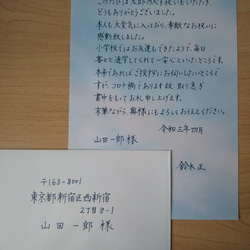 このたびは太郎の入学祝いをいただき
どうもありがとうございました。
本人も大変気に入っており、素敵なお祝いに
感動致しました。
小学校ではお友達もできたようで、毎日
喜々と通学してくれて一安心といたところです。
本来であればご挨拶にお伺いしたいところで
すが、コロナ禍でありますゆえ 取り急ぎ
書中をもってお礼申し上げます。
末筆ながら、奥様にもよろしくお伝えください。
令和三年四月
鈴木 正
山田一郎 様
〒163-8001
東京都新宿区西新宿
2丁目8-1
山田 一郎 様